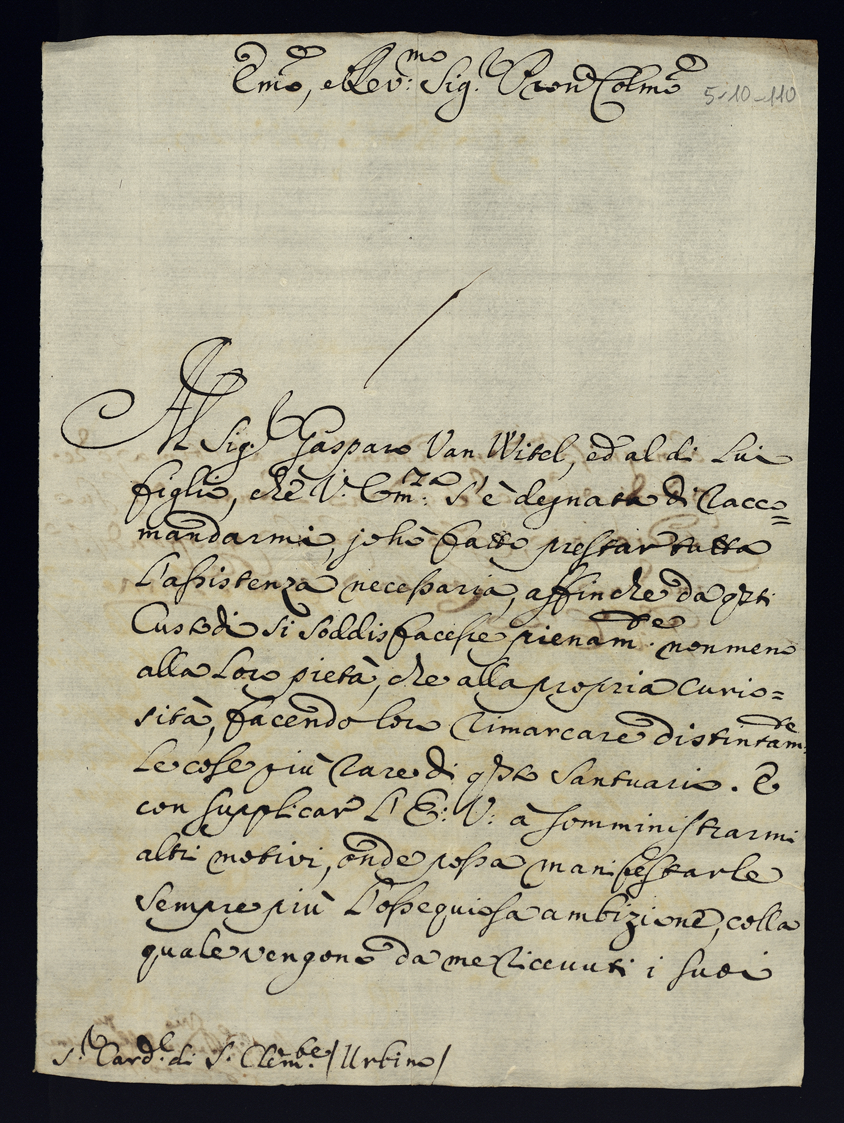 Emo, e Rev:mo Sig.r Pron Colmo
5-10-110
Al Sig.r Gasparo Van Witel, ed al di Lui
figlio, che V. Em:za s'è degnata di racco=
mandarmi, io hò fatto prestar tutta
l'assistenza necessaria, affinche da qsti
Custodi si soddisfacesse pienam.te non meno
alla loro pietà, che alla propria curio=
sità, facendo loro rimarcare distintam:te
le cose più rare di qsto Santuario. E
con supplicar l'E: V: à somministrarmi
altri motivi, onde possa manifestarle
sempre più l'ossequiosa ambizione, colla
quale vengono da me ricevuti i suoi
S.r Card.l di S. Clem.te /Urbino/